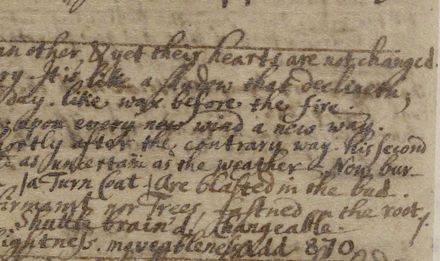 another, & yet their hearts are not changed.
It is like a shadow that declineth,
day. like wax before the fire.
upon every new wind a new way.
shortly after the contrary way. his second
as uncertain as the weather - Now bur
/a Turn Coat / Are blasted in the bud.
nor Trees, fastned in the root,
Shuttle braind, changeable.
lightness. moveableness. add 870